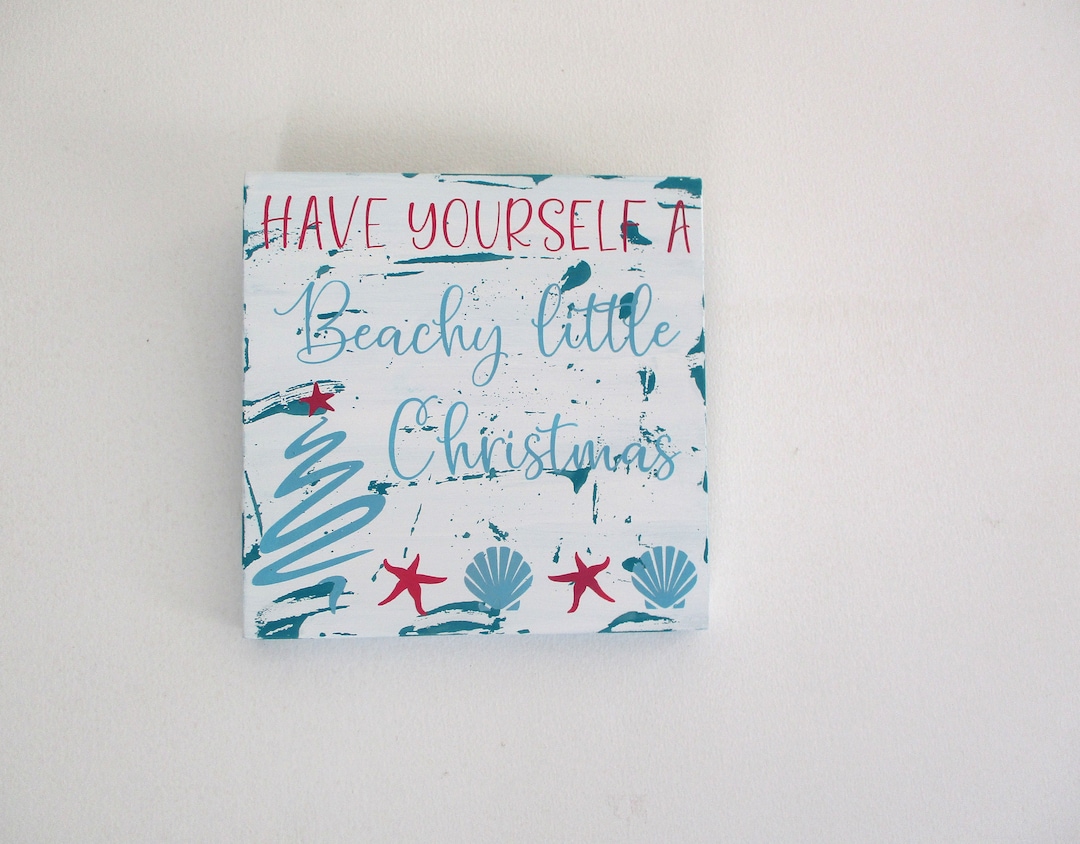 HAVE YOURSELF A
Beachy little
Christmas